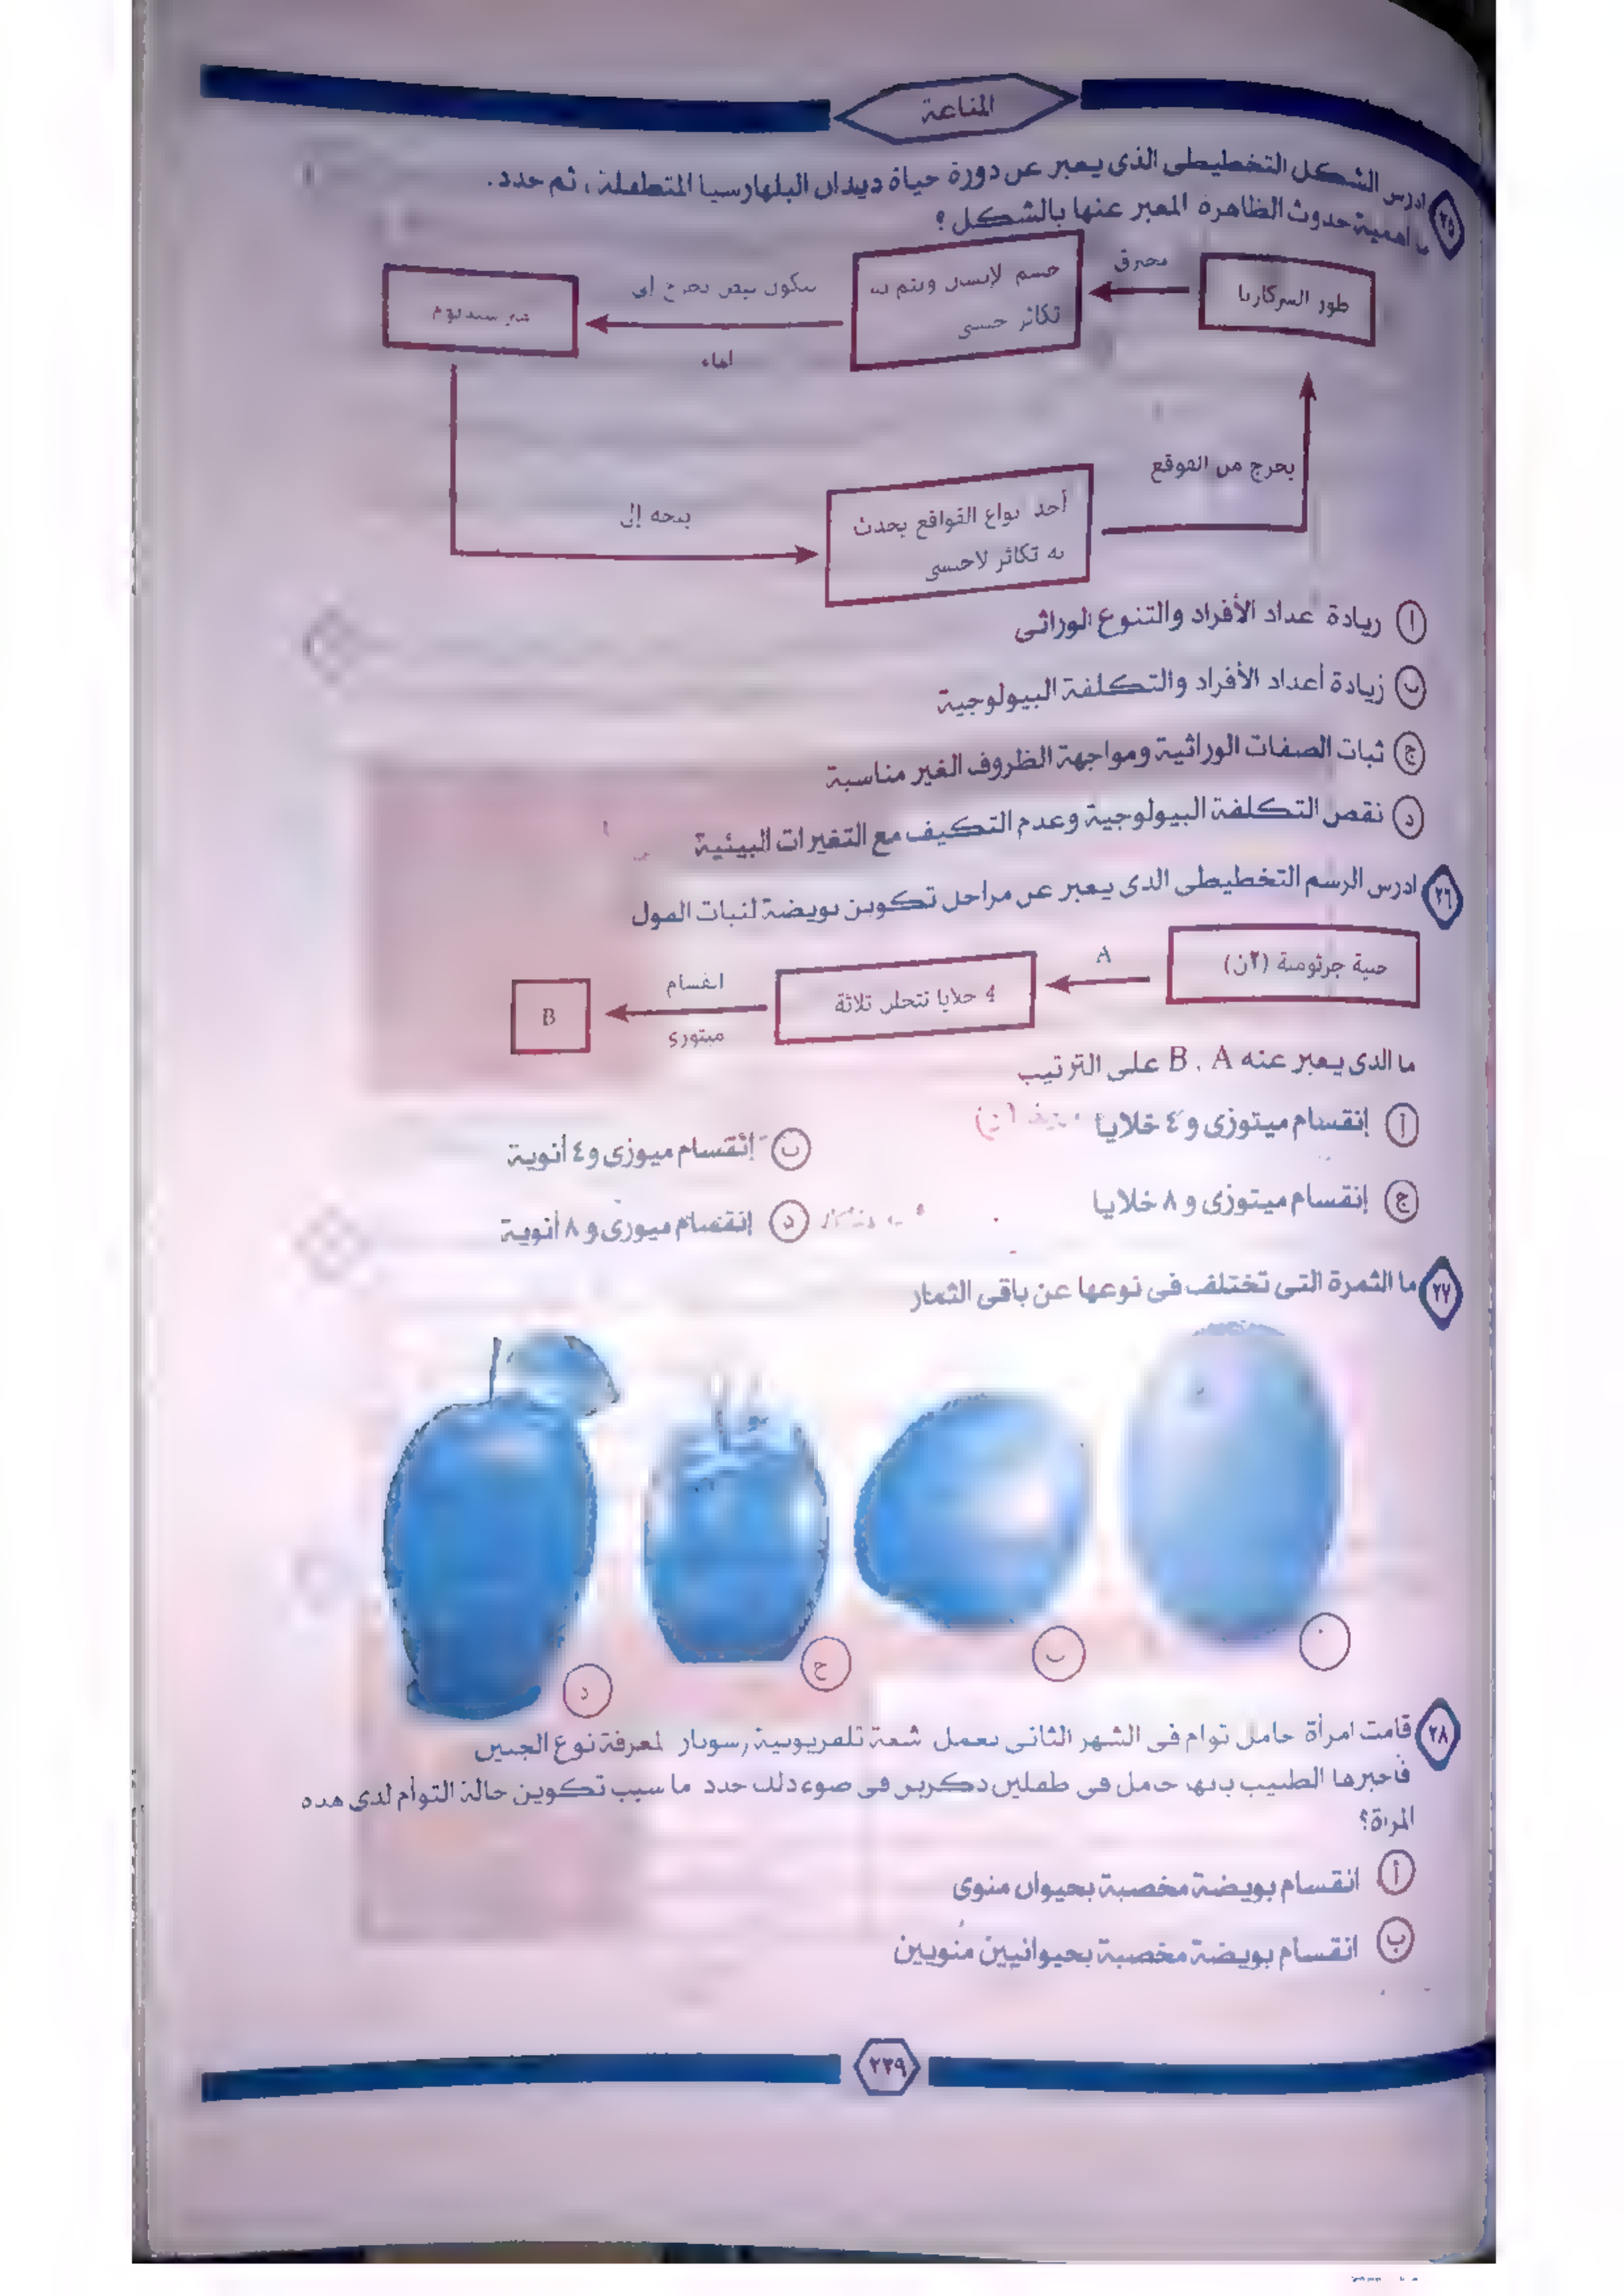 المناعة
٢٥ ادرس الشكل التخطيطى الذى يعبر عن دورة حياة ديدان البلهارسيا المتطفلة ، ثم حدد .
ما اهمية حدوث الظاهرة المعبر عنها بالشكل ؟
طور السركاريا
جسم الإنسان ويتم به
تكاثر جنسى
تكون بيض يخرج إلى
الماء
يتجه إلى
أحد أنواع القواقع يحدث
به تكاثر لاجنسى
يخرج من القوقع
أ زيادة أعداد الأفراد والتنوع الوراثى
ب زيادة أعداد الأفراد والتكلفة البيولوجية
ج ثبات الصفات الوراثية ومواجهة الظروف الغير مناسبة
د نقص التكلفة البيولوجية وعدم التكيف مع التغيرات البيئية
٢٦ ادرس الرسم التخطيطى الذى يعبر عن مراحل تكوين بويضة لنبات الفول
جرثومية (٢ن)
A
4 خلايا تتحلل ثلاثة
انقسام
ميتوزى
B
ما الذى يعبر عنه B ، A على الترتيب
أ إنقسام ميتوزى و ٤ خلايا
ب إنقسام ميوزى و ٤ أنوية
ج إنقسام ميتوزى و ٨ خلايا
د إنقسام ميوزى و ٨ أنوية
٢٧ ما الثمرة التى تختلف فى نوعها عن باقى الثمار
ب
ج
د
٢٨ قامت امرأة حامل توام فى الشهر الثانى بعمل أشعة تلفزيونية (سونار) لمعرفة نوع الجنين
فأخبرها الطبيب بانها حامل فى طفلين ذكرين فى ضوء ذلك حدد ما سبب تكوين حالة التوأم لدى هذه
المرأة؟
أ انقسام بويضة مخصبة بحيوان منوى
ب انقسام بويضة مخصبة بحيوانيين منويين
٢٣٩